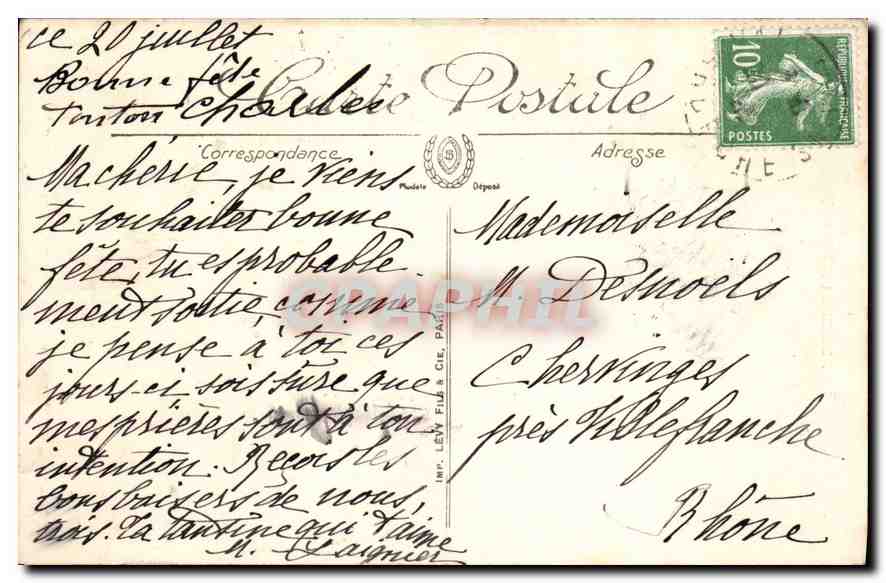 ce 20 juillet
Bonne fête
Tonton Charles
Carte Postale
Correspondance
Adresse
Modèle Déposé
10c
POSTES
REPUBLIQUE FRANÇAISE
Ma chérie, je viens
te souhaiter bonne
fête, tu es probable-
ment sortie, comme
je pense à toi ces
jours-ci, sois sûre que
mes prières sont à ton
intention. Reçois les
bons baisers de nous
trois. Ta tantine qui t'aime
M. Laignier
IMP. LÉVY FILS & CIE, PARIS
Mademoiselle
M. Desnoëls
Chervinges
près Villefranche
Rhône
CPAPHIL